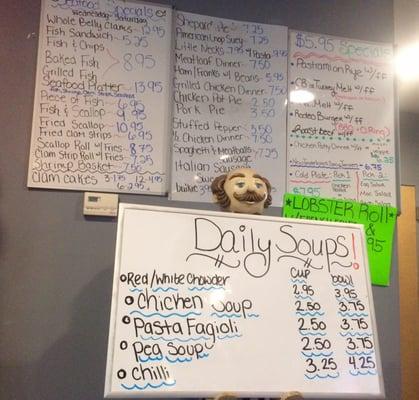 Seafood Specials
Wednesday - Saturday
Whole Belly Clams - 12.95
Fish Sandwich - 5.25
Fish & Chips
Baked Fish
8.95
Grilled Fish
Seafood Platter 13.95
Piece of Fish - 6.95
Fish & Scallop 9.95
Fried Scallop 10.95
Fried Clam Strips 6.95
Scallop Roll w/Fries - 8.75
Clam Strip Roll w/Fries - 7.25
Shrimp Basket 7.50
Clam Cakes
6 - 2.95
Shepard Pie 7.25
American Chop Suey 7.25
Little Necks 7.95 w/Pasta
Meatloaf Dinner - 7.50
Ham/Franks w/Beans - 5.95
Grilled Chicken Dinner 7.50
Chicken Pot Pie 2.50
Pork Pie 3.50
Stuffed Pepper
1/2 Chicken Dinner 7.50
Spaghetti & Meatballs
Sausage 7.25
Italian Sausage
$5.95 Specials
Pastrami on Rye w/ff
CB or Turkey Melt w/ff
Melt w/ff
Rodeo Burger w/ff
Roast Beef
Chicken Patty Dinner w/ff
Cold Plate: Pick 1 Pick 2
Chicken Salad
Egg Salad
Mac Salad
$7.95
*LOBSTER Roll*
Daily Soups!
cup bowl
Red/White Chowder 2.95 3.95
Chicken Soup 2.50 3.75
Pasta Fagioli 2.50 3.75
Pea Soup 2.50 3.75
Chilli 3.25 4.25